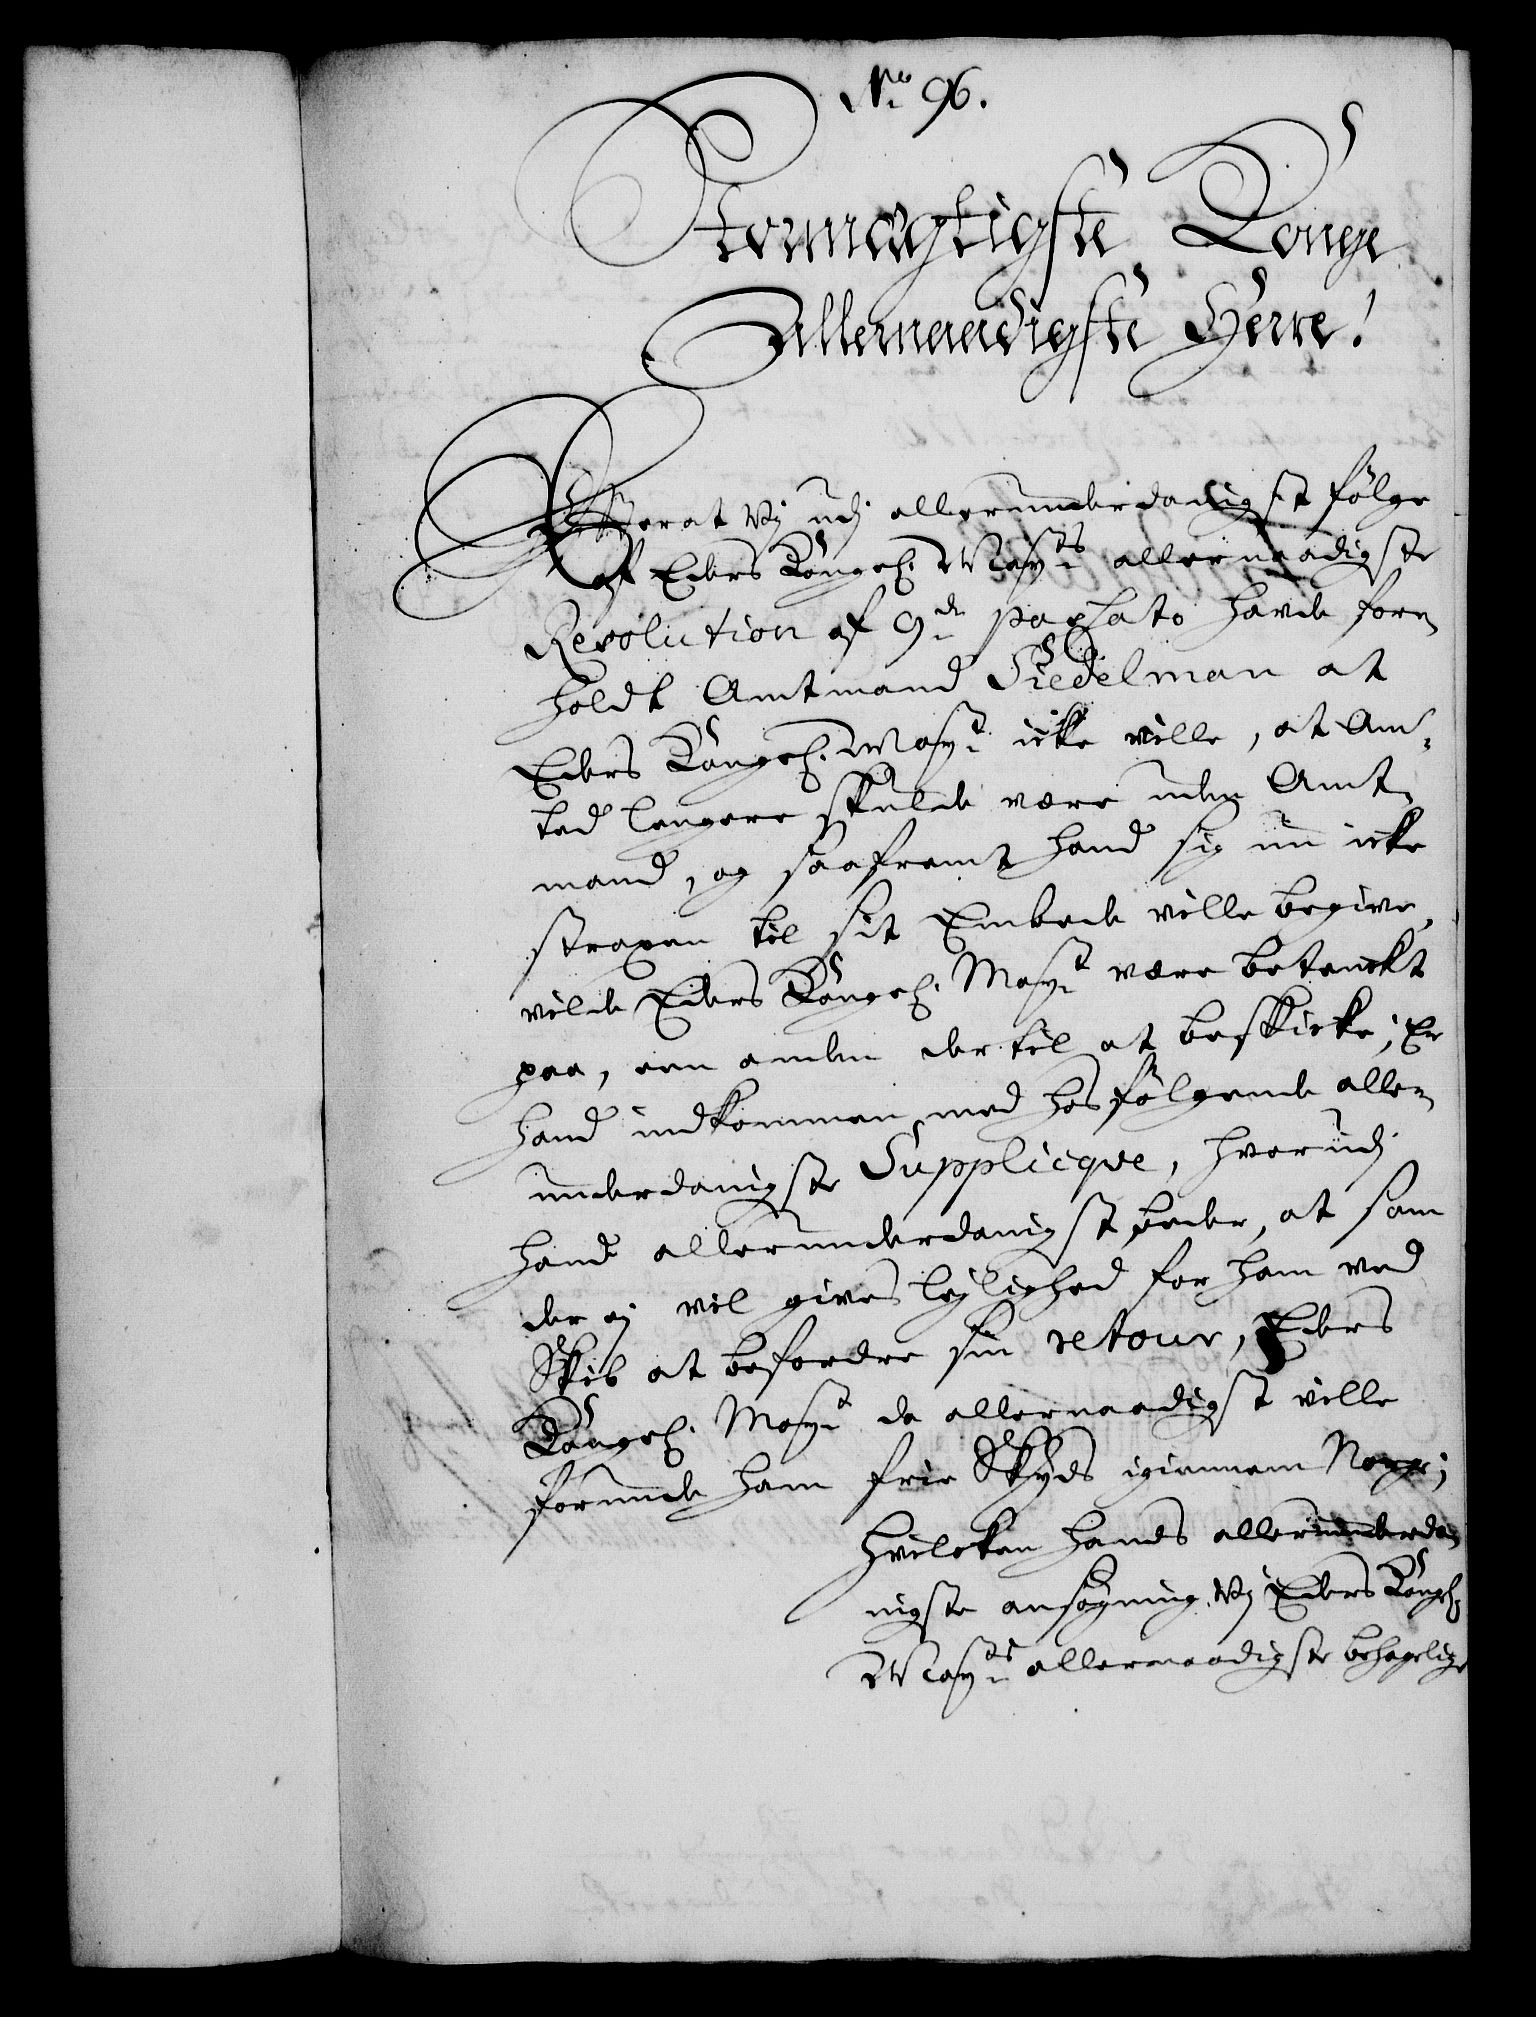 No 96.
Stormægtigste Konge
Allernaadigste Herre!
Efterat Vj udj allerunderdanigst følge
af Eders Kongel. Mayts allernaadigste
Resolution af 9de passato havde fore
holdt Amtmand Siedelman at
Eders Kongel. Mayt icke ville, at Am-
ted lengere skulde være uden Amt-
mand, og saafremt hand sig nu icke
straxen til sit Embede ville begive,
vilde Eders Kongel. Mayt være betenckt
paa, een anden der til at beskicke; Er
hand indkommen med hosfølgende aller-
underdanigste Supplicqve, hvorudj
hand allerunderdanigst beder, at som
der ej vil gives lejlighed for ham ved
Skib at befordre sin retour, Eders
Kongel. Mayt da allernaadigst ville
forunde ham frie Skyds igiennem Norge;
Hvilcken hands allerunderda-
nigste ansøgning Vj Eders Kongel.
Mayts allernaadigste behagelige